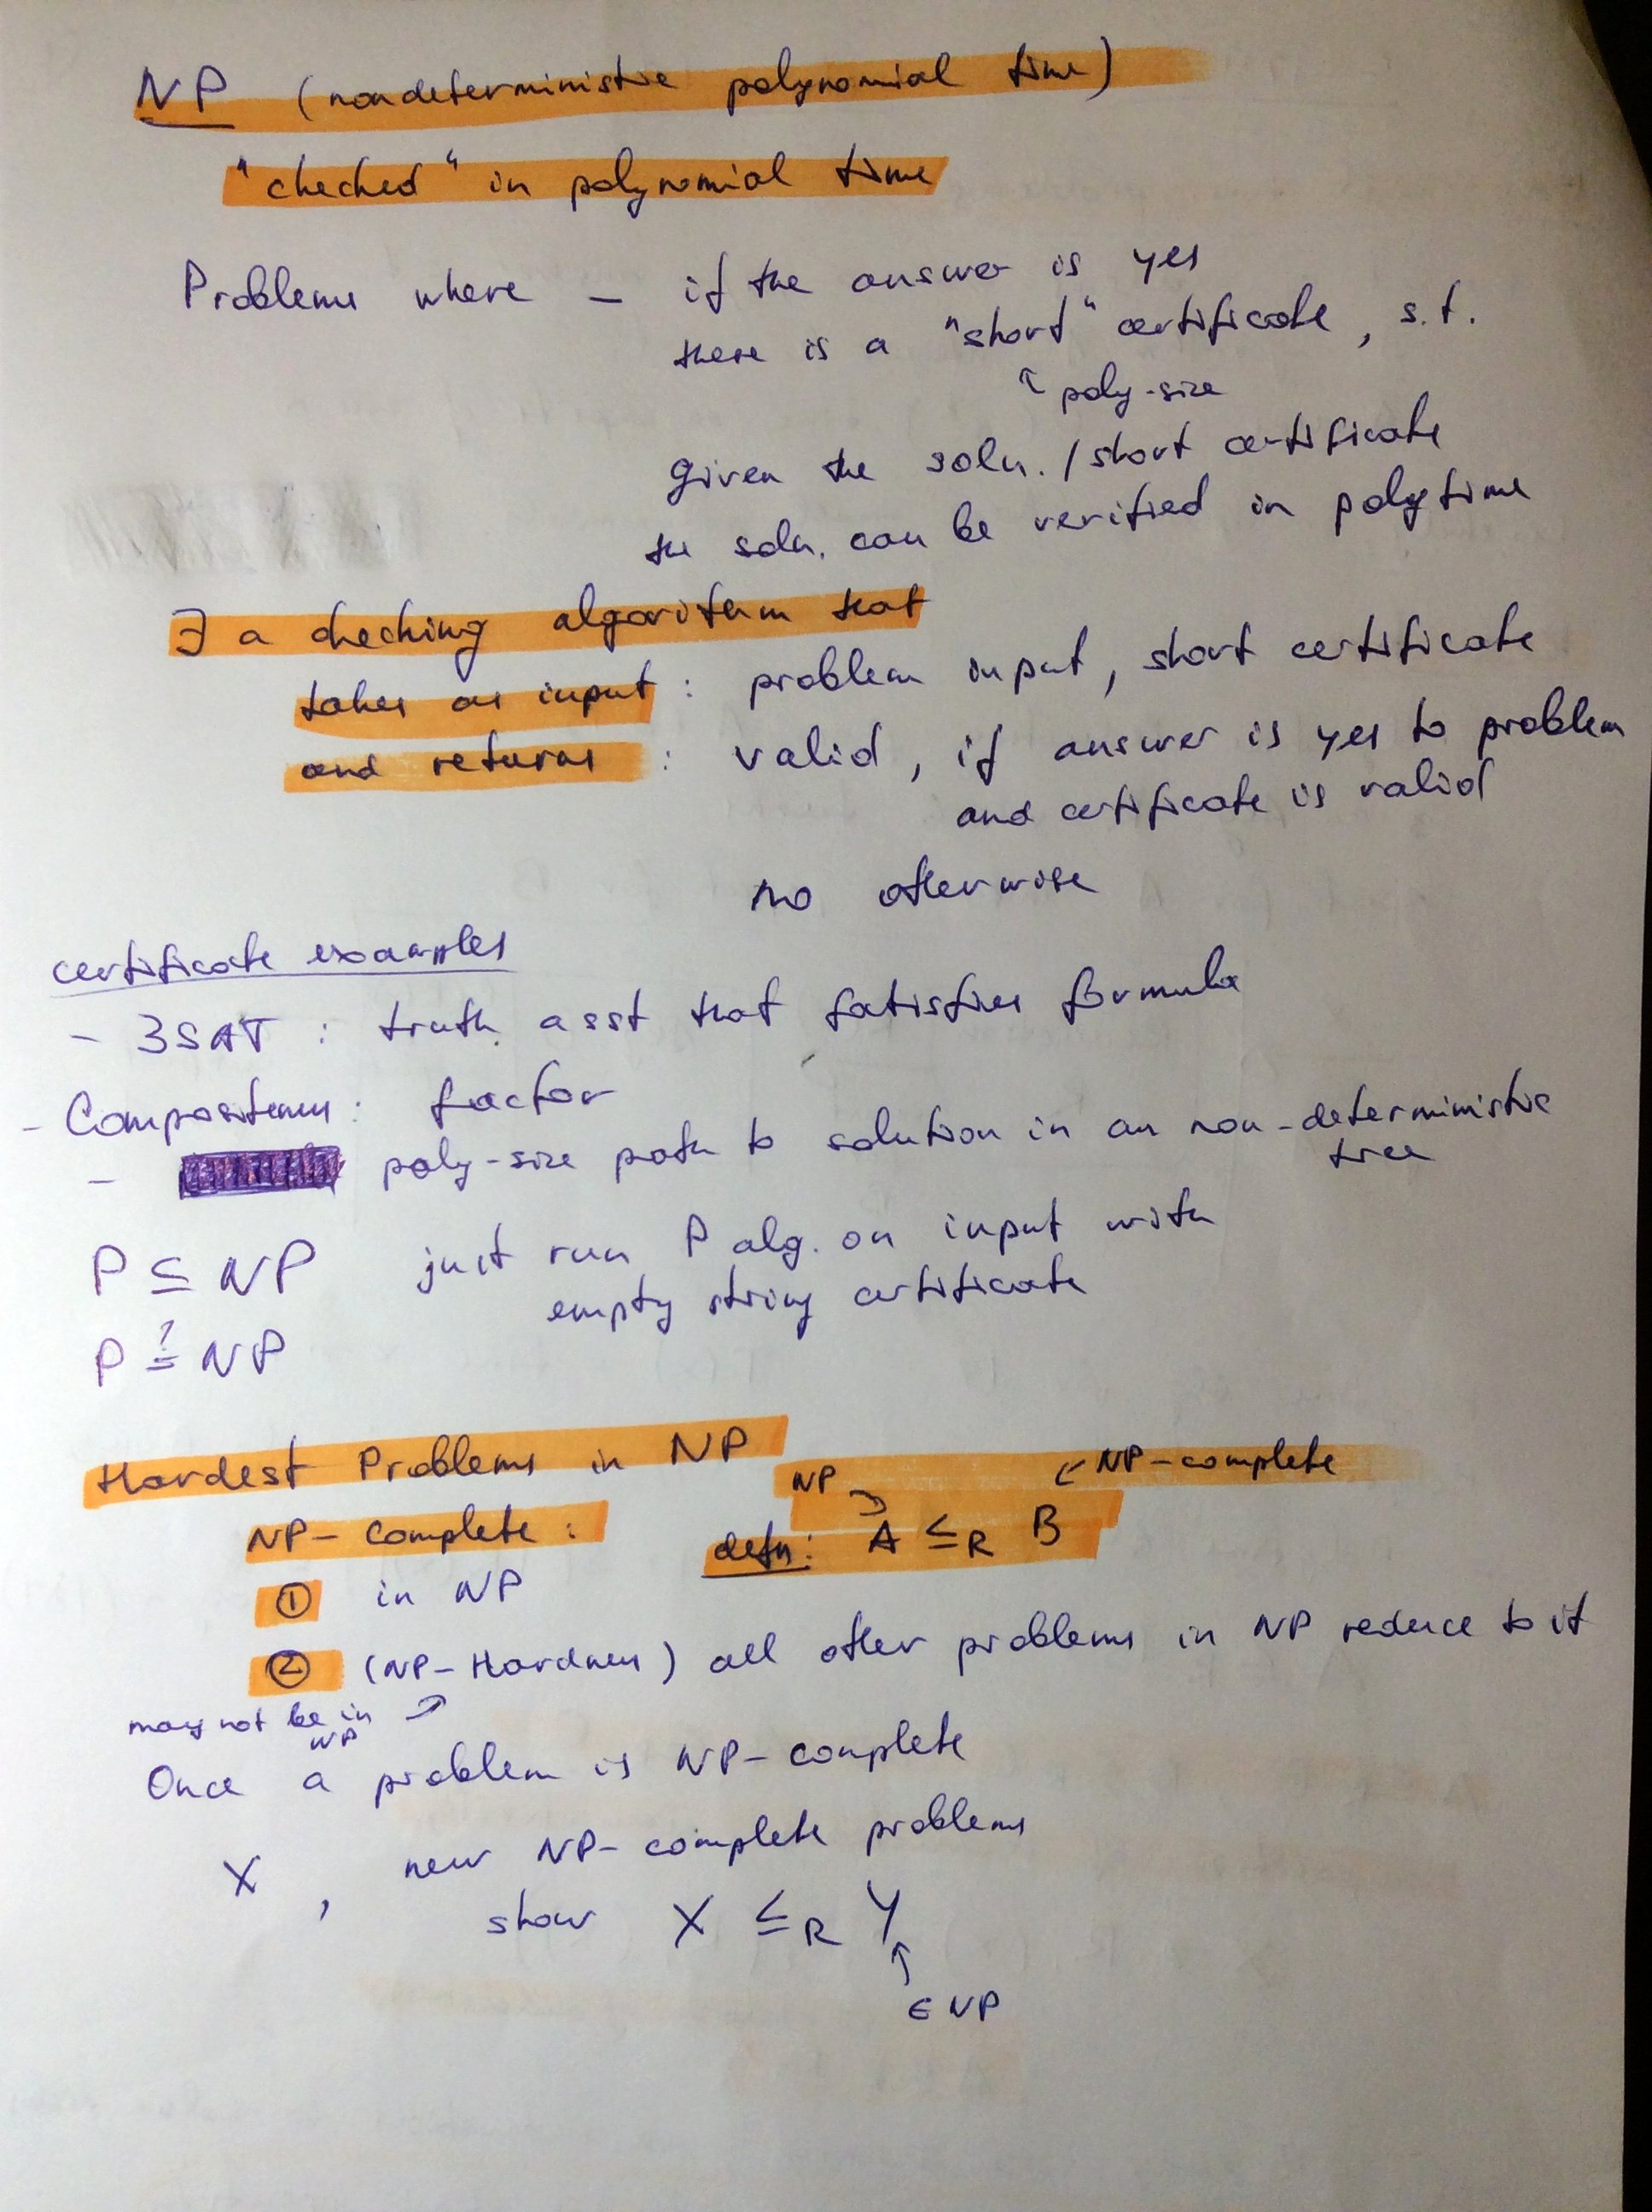 NP (nondeterministic polynomial time)
"checked" in polynomial time
Problems where – if the answer is yes
there is a "short" certificate, s.t.
↑ poly-size
given the soln. / short certificate
the soln. can be verified in polytime
∃ a checking algorithm that
takes as input : problem input, short certificate
and returns : valid, if answer is yes to problem
and certificate is valid
no otherwise
certificate examples
- 3SAT : truth asst that satisfies formula
- Compositeness : factor
- poly-size path to solution in an non-deterministic
tree
P ⊆ NP just run P alg. on input with
empty string certificate
P ≟ NP
Hardest Problems in NP
NP ← NP-complete
NP-complete : defn: A ≤R B
① in NP
② (NP-Hardness) all other problems in NP reduce to it
may not be in ↗
NP
Once a problem is NP-complete
X , new NP-complete problems
show X ≤R Y
↑
∈ NP